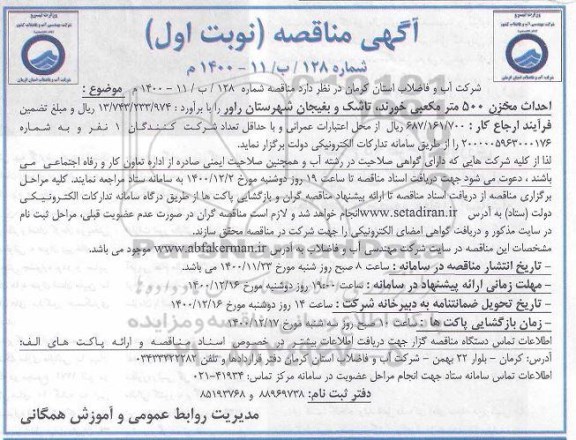 آگهی مناقصه (نوبت اول)
شماره ۱۲۸ / ب/ ۱۱ - ۱۴۰۰ م
شرکت آب و فاضلاب استان کرمان در نظر دارد مناقصه شماره ۱۲۸ / ب / ۱۱ - ۱۴۰۰ م موضوع :
احداث مخزن ۵۰۰ متر مکعبی خورند، تاشک و بغیجان شهرستان راور را با برآورد : ۱۳/۷۴۳/۲۳۳/۹۷۴ ریال و مبلغ تضمین
فرآیند ارجاع کار : ۶۸۷/۱۶۱/۷۰۰ ریال از محل اعتبارات عمرانی و با حداقل تعداد شرکت کنندگان ۱ نفر و به شماره
۲۰۰۰۰۰۵۹۶۳۰۰۰۱۷۶ را از طریق سامانه تدارکات الکترونیکی دولت برگزار نماید.
لذا از کلیه شرکت هایی که دارای گواهی صلاحیت در رشته آب و همچنین صلاحیت ایمنی صادره از اداره تعاون کار و رفاه اجتماعی می
باشند ، دعوت می شود جهت دریافت اسناد مناقصه تا ساعت ۱۹ روز دوشنبه مورخ ۱۴۰۰/۱۲/۲ به سامانه ستاد مراجعه نمایند. کلیه مراحل
برگزاری مناقصه از دریافت اسناد مناقصه تا ارائه پیشنهاد مناقصه گران و بازگشایی پاکت ها از طریق درگاه سامانه تدارکات الکترونیکی
دولت (ستاد) به آدرس www.setadiran.ir انجام خواهد شد و لازم است مناقصه گران در صورت عدم عضویت قبلی، مراحل ثبت نام
در سایت مذکور و دریافت گواهی امضای الکترونیکی را جهت شرکت در مناقصه محقق سازند.
مشخصات این مناقصه در سایت شرکت مهندسی آب و فاضلاب به آدرس www.abfakerman.ir موجود می باشد.
- تاریخ انتشار مناقصه در سامانه : ساعت ۸ صبح روز شنبه مورخ ۱۴۰۰/۱۱/۲۳ می باشد.
- مهلت زمانی ارائه پیشنهاد در سامانه : ساعت ۱۹:۰۰ روز دوشنبه مورخ ۱۴۰۰/۱۲/۱۶
- تاریخ تحویل ضمانتنامه به دبیرخانه شرکت : ساعت ۱۴ روز دوشنبه مورخ ۱۴۰۰/۱۲/۱۶
- زمان بازگشایی پاکت ها : ساعت ۱۰ صبح روز سه شنبه مورخ ۱۴۰۰/۱۲/۱۷
اطلاعات تماس دستگاه مناقصه گزار جهت دریافت اطلاعات بیشتر در خصوص اسناد مناقصه و ارائه پاکت های الف:
آدرس: کرمان - بلوار ۲۲ بهمن - شرکت آب و فاضلاب استان کرمان دفتر قراردادها و تلفن ۰۳۴۳۳۲۲۲۸۲
اطلاعات تماس سامانه ستاد جهت انجام مراحل عضویت در سامانه مرکز تماس: ۴۱۹۳۴-۰۲۱
دفتر ثبت نام: ۸۸۹۶۹۷۳۸ و ۸۵۱۹۳۷۶۸
مدیریت روابط عمومی و آموزش همگانی